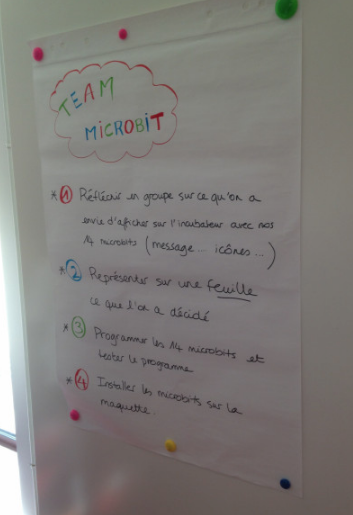 TEAM
MICROBIT
* 1 Réfléchir en groupe sur ce qu'on a
envie d'afficher sur l'incubateur avec nos
14 microbits (message... icônes...)
* 2 Représenter sur une feuille
ce que l'on a décidé
* 3 Programmer les 14 microbits et
tester le programme
* 4 Installer les microbits sur la
maquette.